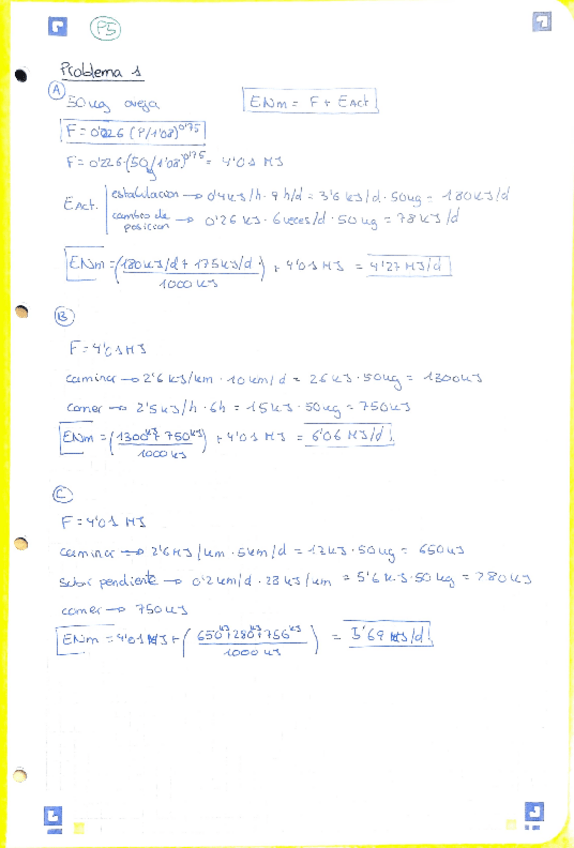 P5
Problema 1
A
50 kg oveja
ENm = F + EAct
F = 0'226 (P/1'08)^0'75
F = 0'226·(50/1'08)^0'75 = 4'01 MJ
EAct.
estabulación → 0'4 kJ/h · 9 h/d = 3'6 kJ/d · 50 kg = 180 kJ/d
cambio de posición → 0'26 kJ · 6 veces/d · 50 kg = 78 kJ/d
ENm = (180 kJ/d + 175 kJ/d / 1000 kJ) + 4'01 MJ = 4'27 MJ/d
B
F = 4'01 MJ
caminar → 2'6 kJ/km · 10 km/d = 26 kJ · 50 kg = 1300 kJ
comer → 2'5 kJ/h · 6h = 15 kJ · 50 kg = 750 kJ
ENm = (1300 kJ + 750 kJ / 1000 kJ) + 4'01 MJ = 6'06 MJ/d
C
F = 4'01 MJ
caminar → 2'6 MJ/km · 5 km/d = 13 kJ · 50 kg = 650 kJ
subir pendiente → 0'2 km/d · 28 kJ/km = 5'6 kJ · 50 kg = 280 kJ
comer → 750 kJ
ENm = 4'01 MJ + (650 kJ + 280 kJ + 750 kJ / 1000 kJ) = 5'69 MJ/d